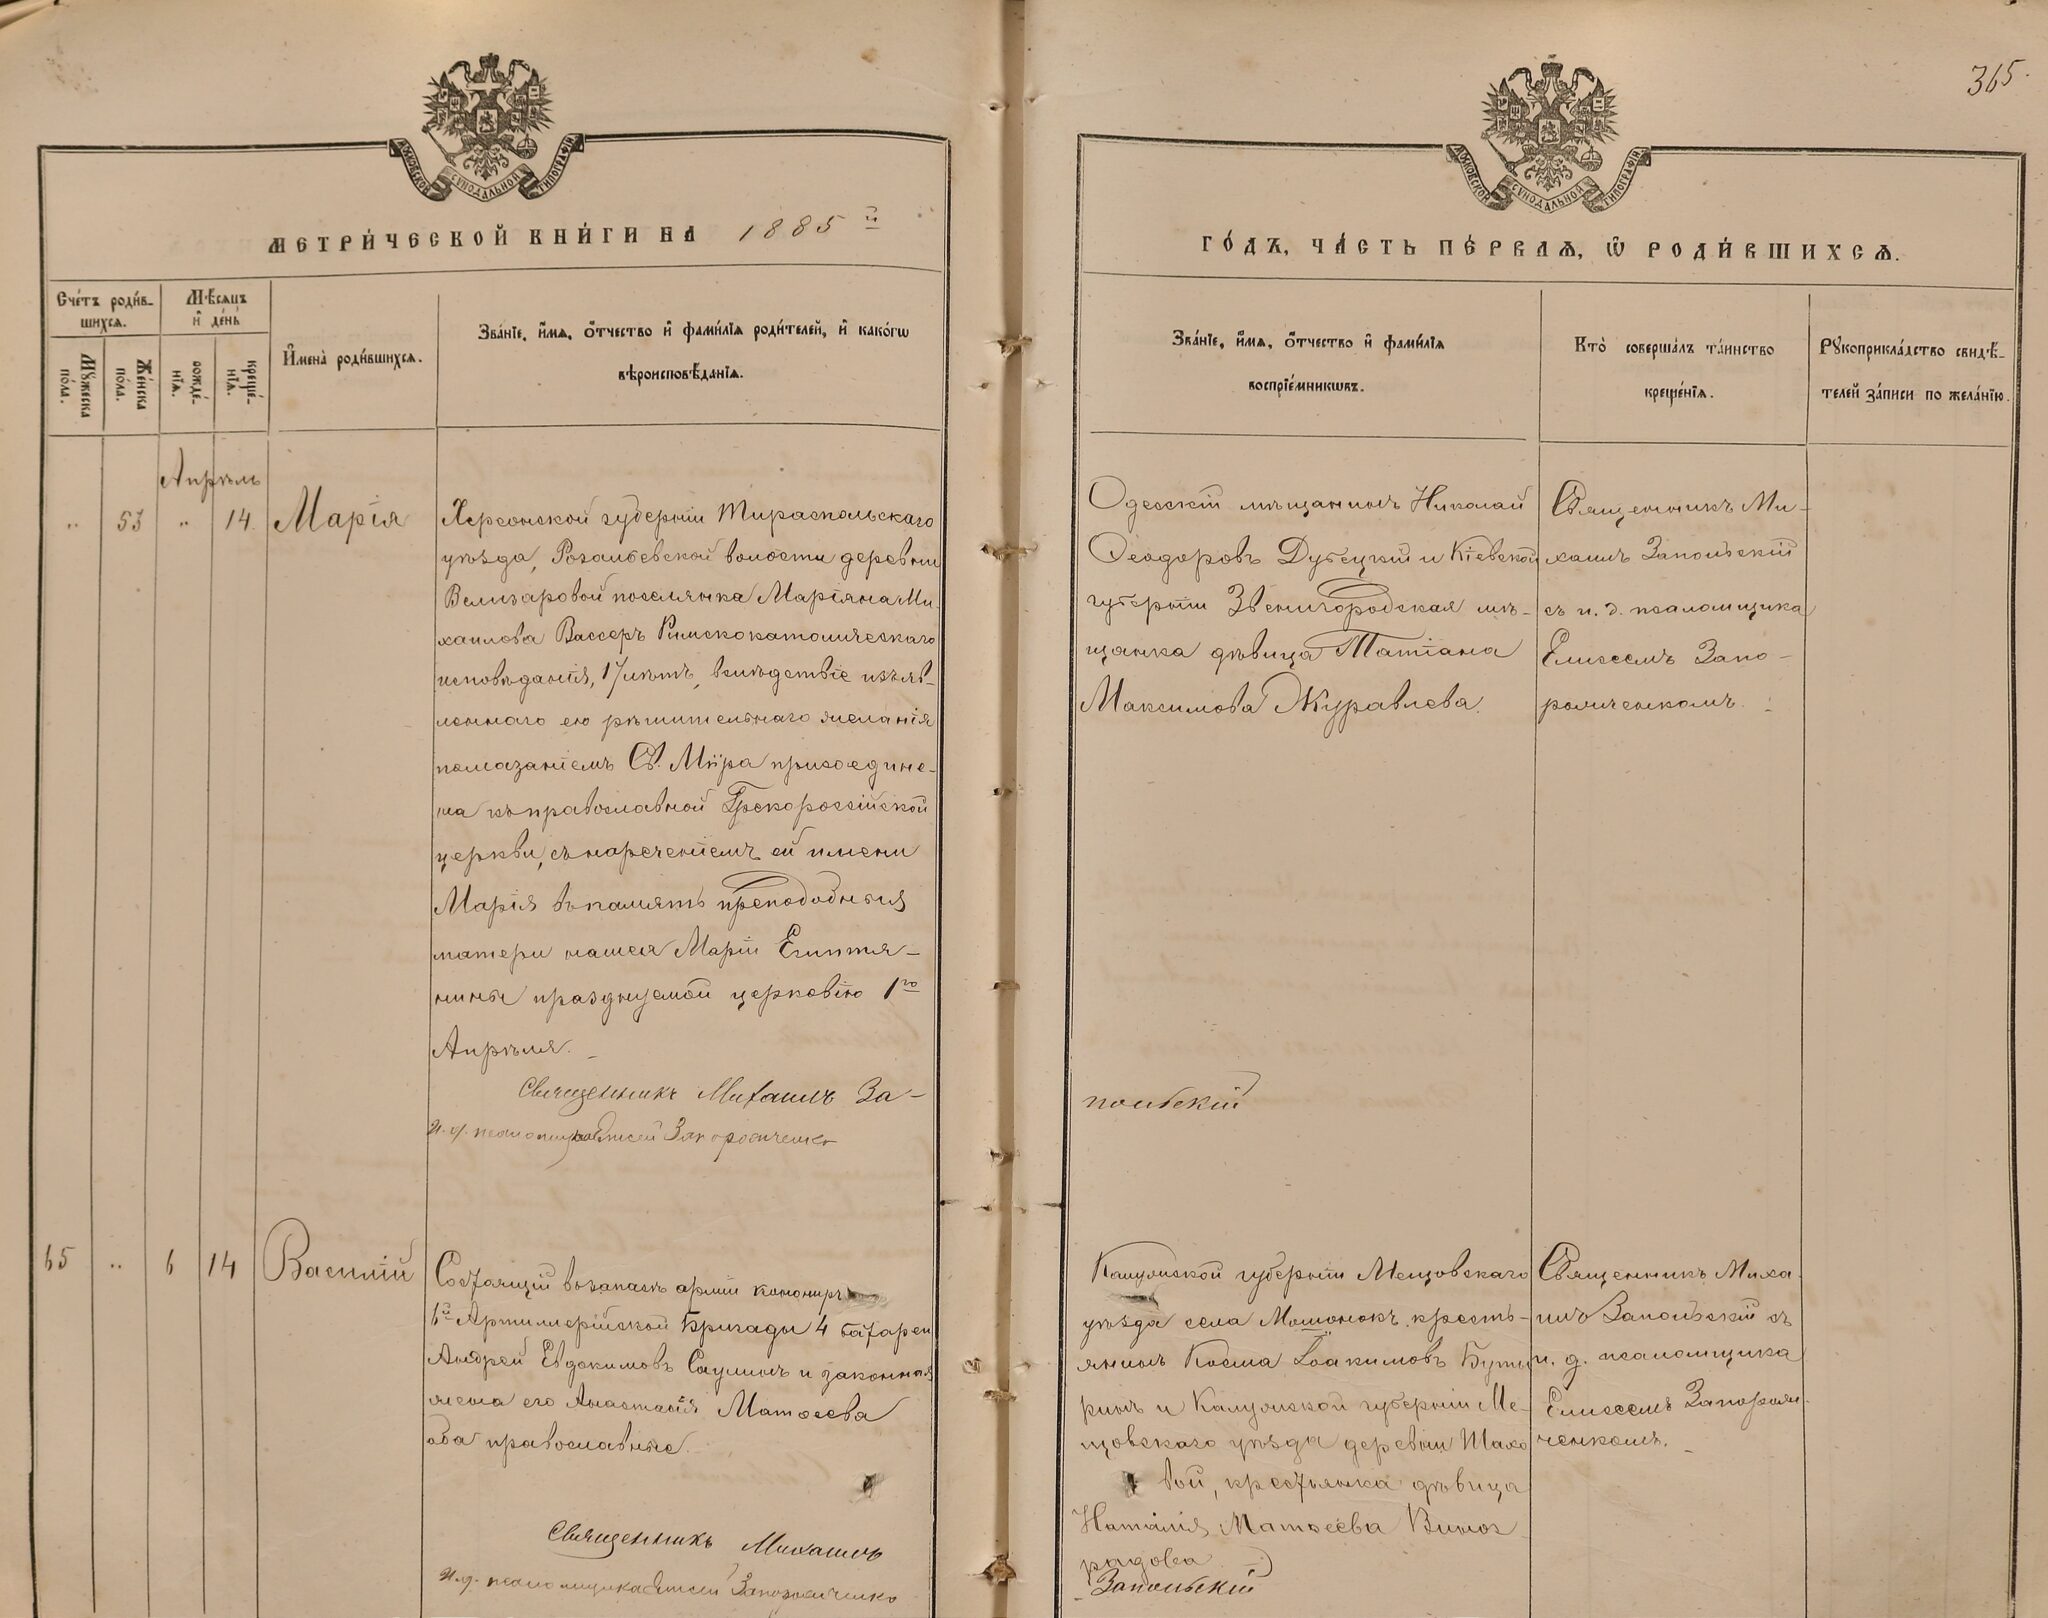 365.
МОСКОВСКОЙ СУНОДАЛЬНОЙ ТИПОГРАФІИ
МОСКОВСКОЙ СУНОДАЛЬНОЙ ТИПОГРАФІИ
МЕТРИ́ЧЕСКОЙ КНИ́ГИ НА 1885 й
ГО́ДЪ, ЧА́СТЬ ПЕ́РВАѦ, Ѿ РОДИ́ВШИХСѦ.
Сче́тъ роди́в-
шихсѧ.
Мѣ́сѧцъ
и҆ де́нь
Мꙋ́жеска
по́ла.
Же́нска
по́ла.
рожде́-
нїѧ.
креще́-
нїѧ.
И҆мена̀ роди́вшихсѧ.
Зва́нїе, и҆́мѧ, ѻ҆́тчество и҆ фами́лїѧ роди́телей, и҆ како́гѡ
вѣроисповѣ́данїѧ.
Зва́нїе, и҆́мѧ, ѻ҆́тчество и҆ фами́лїѧ
воспрїе́мникѡвъ.
Кто̀ соверша́лъ та́инство
креще́нїѧ.
Рꙋкоприкла́дство свидѣ́-
телей за́писи по жела́нїю.
Апрѣль
" 53 " 14. Марія
Херсонской губерніи Тираспольскаго
уѣзда, Розальевской волости деревни
Велизаровой поселянка Маріяна Ми-
хаилова Вассеръ Римскокатолическаго
исповѣданія, 17 лѣтъ, вслѣдствіе изъяв-
леннаго ею рѣшительнаго желанія
помазаніемъ Св. Мѵра присоедине-
на къ православной Грекороссійской
церкви, съ нареченіемъ ей имени
Марія въ память преподобныя
матери нашея Маріи Египтя-
ныни празднуемой церковію 1го
Апрѣля.
Священникъ Михаилъ За-
И. д. псаломщика Елисей Запорожченко
Одесскій мѣщанинъ Николай
Ѳеодоровъ Дубецкій и Кіевской
губерніи Звенигородская мѣ-
щанка дѣвица Татіана
Максимова Журавлева.
польскій
Священникъ Ми-
хаилъ Запольскій
съ и. д. псаломщика
Елисеемъ Запо-
рожченкомъ.
65 " 6 14 Василій
Состоящій въ запасѣ арміи канониръ
6й Артиллерійской Бригады 4 батареи
Андрей Евдокимовъ Саулинъ и законная
жена его Анастасія Матѳеева
оба православные.
Священникъ Михаилъ
И. д. псаломщика Елисей Запорожченко
Калужской губерніи Мещовскаго
уѣзда села Мошонокъ кресть-
янинъ Косма Іоакимовъ Буты
ринъ и Калужской губерніи Ме-
щовскаго уѣзда деревни Шахо
вой, крестьянка дѣвица
Наталія Матѳеева Виног
радова
Запольскій
Священникъ Миха-
илъ Запольскій съ
и. д. псаломщика
Елисеемъ Запорож-
ченкомъ.